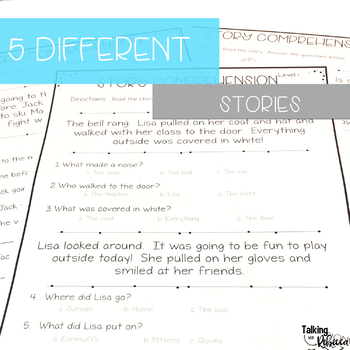 5 DIFFERENT
STORIES
STORY COMPREHENSION
Level:
Directions: Read the story.
The bell rang. Lisa pulled on her coat and hat and
walked with her class to the door. Everything
outside was covered in white!
1. What made a noise?
a. The door b. The bell c. The car
2. Who walked to the door?
a. The teacher b. Lisa c. The class
3. What was covered in white?
a. The coat b. Everything c. The door
Lisa looked around. It was going to be fun to play
outside today! She pulled on her gloves and
smiled at her friends.
4. Where did Lisa go?
a. Outside b. Home c. The bus
5. What did Lisa put on?
a. Earmuffs b. Mittens c. Gloves
STORY COMPREHENSION
Read the story. Answer the questions below.
going to th
Jack
to ski Ma
Fight w
Is e
Talking
with
Rebecca